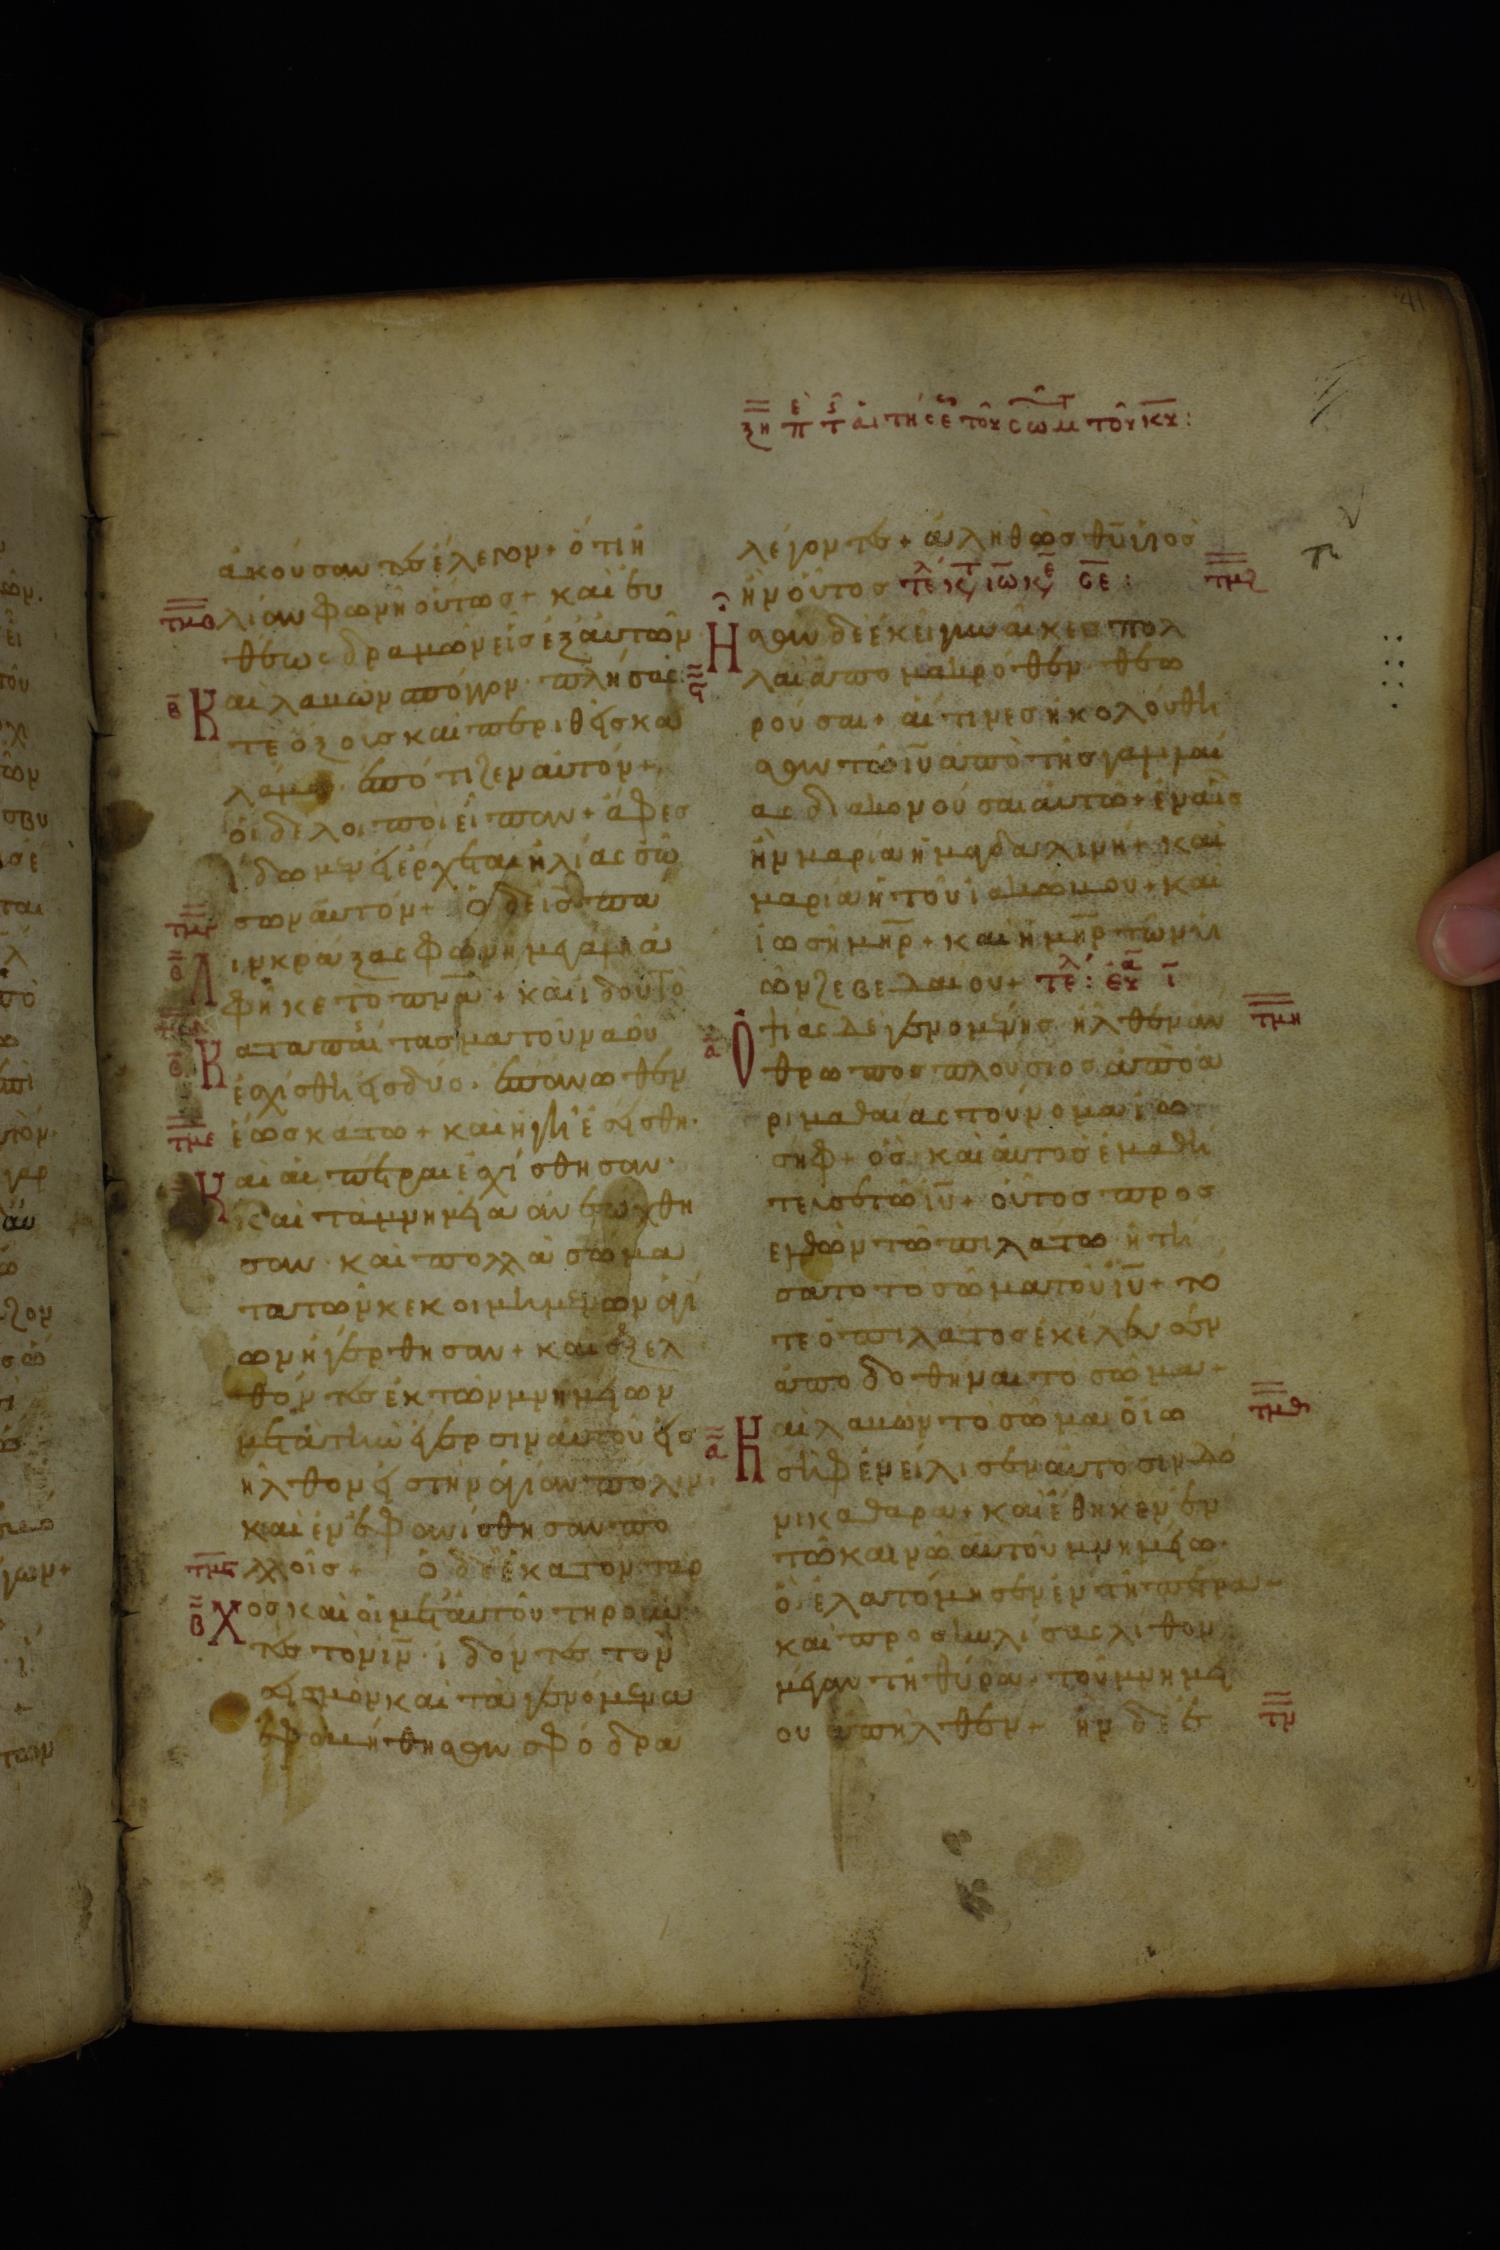 ξη πε τ αιτήσε τοῦ σώμ τοῦ κυ:
ἀκούσαντες ἔλεγον+ ὅτι ἡ
λίαν φωνῆ οὗτωσ+ καὶ ἐυ
τμβ
θέως δραμὼν εἷσ ἐξαυτῶν
Και λαβὼν σπόγγον· πλήσασ
β
τε ὄξουσ καὶ περιθεὶσ κα
λάμω· ἐπότιζεν αυτόν+
ὁι δε λοιποὶ εἶπαν+ ἄφεσ
ἴδωμεν εἰ ἔρχεται ἠλίας σώ
σων ἀυτόν+ Ὁ δὲ ισ πα
λιν κράξας φωνῆ μεγάλη ἀ
φῆκε τὸ πνα+ καὶ ιδοὺ τὸ
Καταπέτασματοῦναοῦ
ἐσχίσθη εἰσ δύο· ἐπάνωθεν
ἑώσ κατω+ καὶ ἡ γῆ ἐσείσθη·
τμε
Και αἱ πέτραι ἐσχίσθησαν·
καὶ τὰ μνημεῖα ἀνεώχθη
σαν· καὶ πολλὰ σώμα
τα τῶν κεκοιμημένων ἁγί
ων ἠγέρθησαν+ και ἐξελ
θόντεσ ἐκ τῶν μνημείων
μετὰ τὴν ἔγερσιν ἀυτοῦ εἰσ
ῆλθον εἰσ τὴν ἁγίαν πόλιν·
καὶ ἐνεφανίσθησαν πο
λλοῖσ+ Ὁ δὲ ἑκατόνταρ
τμς
Χοσ καὶ ὁι μετ ἀυτοῦ τηροῦν
β
τεσ τὸν ιν· ἰδόντεσ τὸν
σεισμὸν καὶ τὰ γενόμενα
ἐφοβήθησαν σφόδρα
λέγοντεσ+ ἀληθῶσ θυ υἱοσ
ἦν οὗτοσ τελ κς τ ιω κς ε σε:
τμζ
Ησαν δὲ ἐκεῖ γυναῖκεσ πολ
ς
λαὶ ἀπο μακρόθεν θεω
ρούσαι+ ἁίτινεσ ἠκολούθη
σαν τῶ ιυ ἀπὸ τῆσ γαλιλαί
ας διακονούσαι ἀυτω+ ἐν αἷσ
ἦν μαρία ἡ μαγδαλινή+ καὶ
μαρία ἡ τοῦ ιακώβου+ καὶ
ἰωσὴ μηρ+ καὶ ἡ μηρ τῶν υἱ
ῶν ζεβεδαίου+ τελ: ευ α ι
Ὀψίας δὲ γενομένησ ἦλθεν ἀν
α
τμη
θρωποσ πλούσιοσ ἀπὸ ἀ
ριμαθαίας τοὔνομα ἰω
σὴφ+ ὃσ καὶ ἀυτὸσ ἐμαθή
τευσε τῶ ιυ+ οὗτοσ προσ
ελθὼν τῶ πιλάτω· ἠτή
σατο τὸ σῶμα τοῦ ιυ+ το
τε ὁ πιλατοσ ἐκέλευσεν
ἀποδοθῆναι το σῶμα+
Και λαβὼν τὸ σῶμα ὁ ἰω
α
τμθ
σὴφ ἐνείλισεν ἀυτο σινδό
νι καθαρα+ καὶ ἔθηκεν ἐν
τῶ καινῶ ἀυτοῦ μνημείω·
ὃ ἐλατόμησεν ἐν τῆ πέτρα·
καὶ προσκυλίσας λίθον
μέγαν τῆ θύρα· τοῦ μνημεί
ου ἀπῆλθεν+ ἦν δὲ ἐ
τν